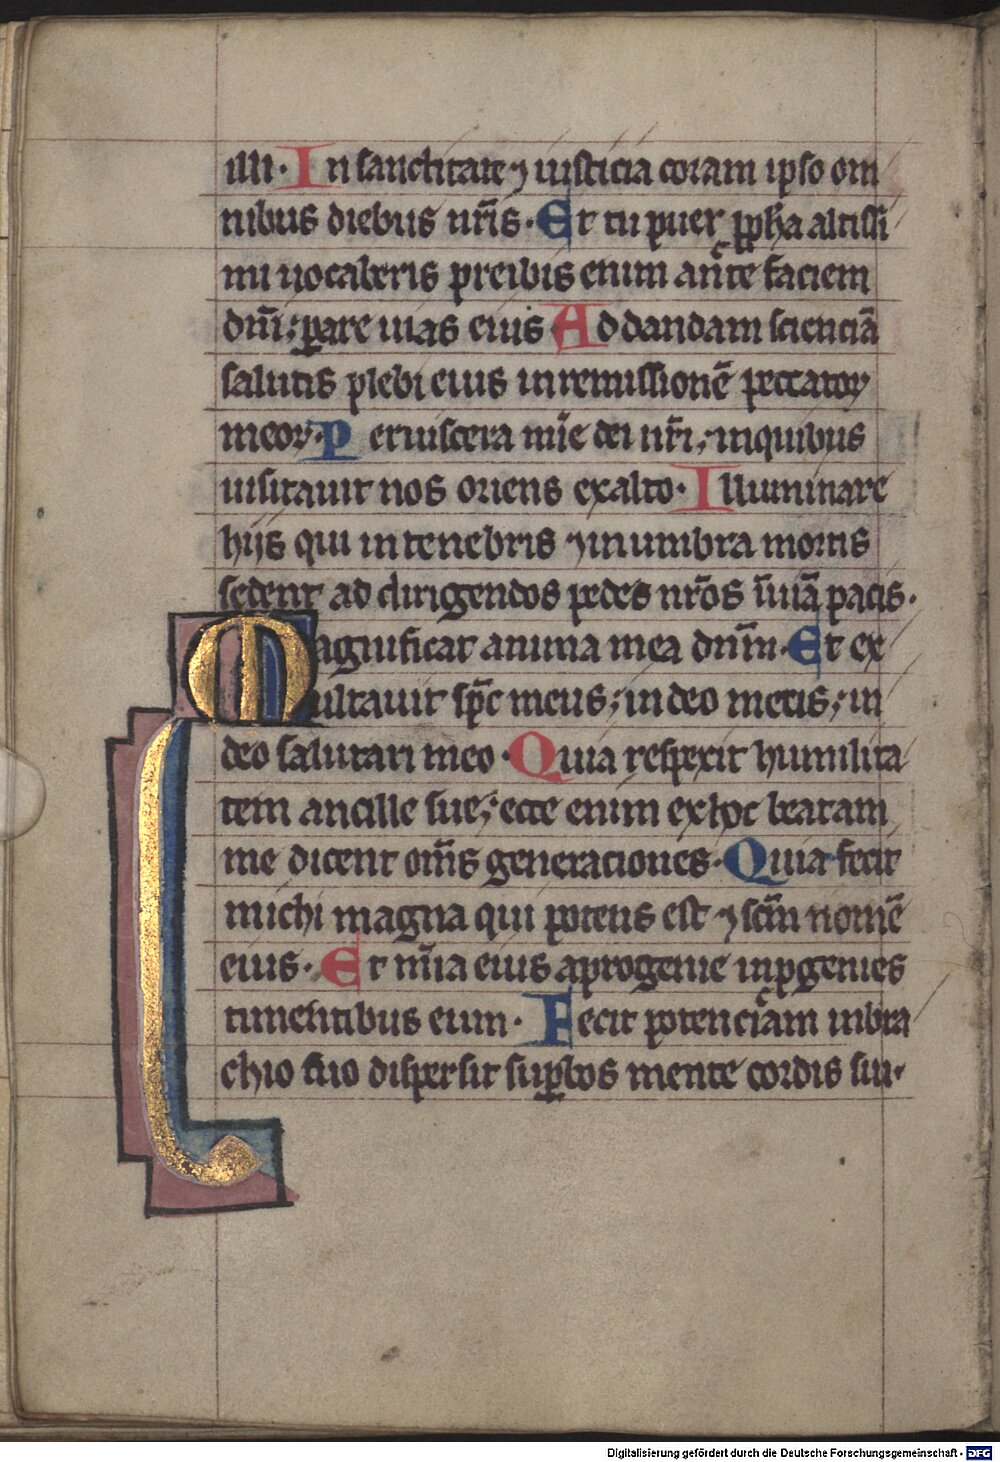 illi. In sanctitate ⁊ iusticia coram ipso om
nibus diebus nr̄is. Et tu puer ꝓph̄a altissi
mi uocaberis preibis enim ante faciem
dn̄i; ꝑare uias eius Ad dandam scienciā
salutis plebi eius in remissionē peccatoꝝ
meoꝝ. Per uiscera mīe dei nr̄i; in quibus
uisitauit nos oriens exalto. Illuminare
hijs qui in tenebris ⁊ in umbra mortis
sedent ad dirigendos pedes nr̄os ī uiā pacis.
Magnificat anima mea dnm̄. Et ex
ultauit sp̄c meus; in deo meus; in
deo salutari meo. Quia respexit humilita
tem ancille sue; ecce enim ex hoc beatam
me dicent om̄s generationes. Quia fecit
michi magna qui potens est ⁊ scm̄ nomē
eius. Et mīa eius a progenie in ꝓgenies
timentibus eum. Fecit potenciam in bra
chio suo dispersit suꝑbos mente cordis sui.
Digitalisierung gefördert durch die Deutsche Forschungsgemeinschaft - DFG